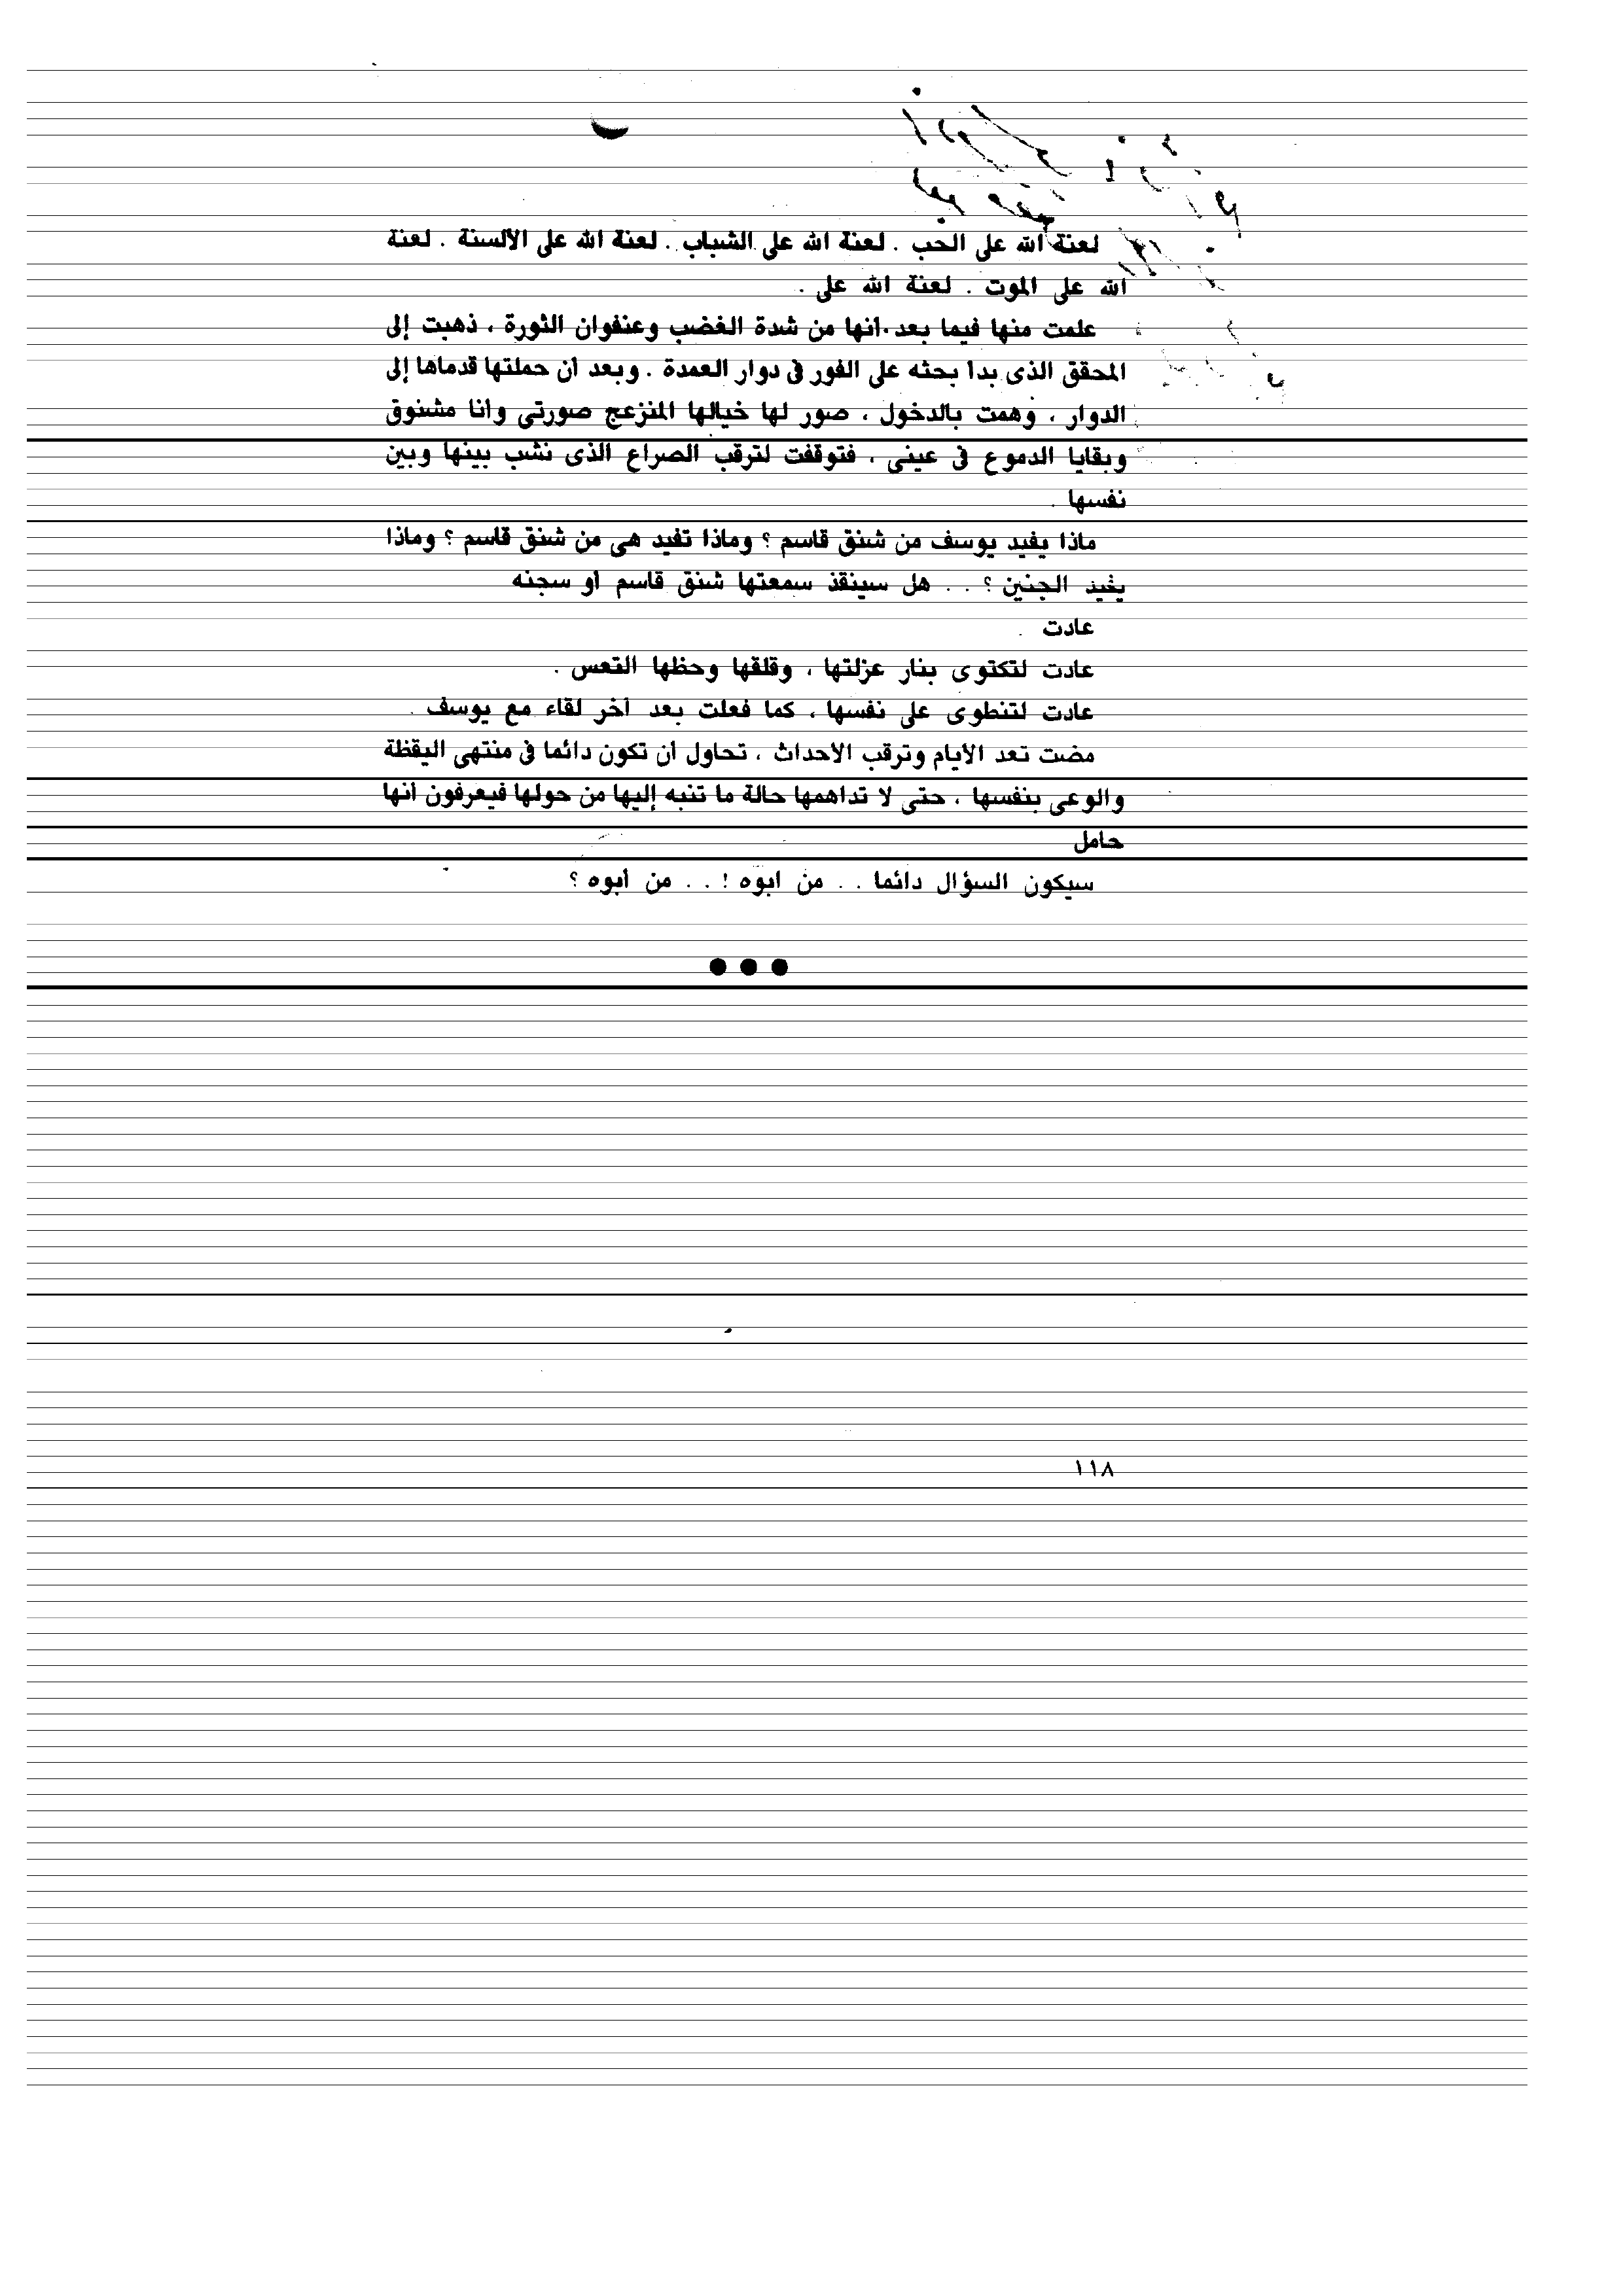 لعنة الله على الحب . لعنة الله على الشباب . لعنة الله على الألسنة . لعنة
الله على الموت . لعنة الله على .
علمت منها فيما بعد أنها من شدة الغضب وعنفوان الثورة ، ذهبت إلى
المحقق الذى بدأ بحثه على الفور فى دوار العمدة . وبعد أن حملتها قدماها إلى
الدوار ، وهمت بالدخول ، صور لها خيالها المنزعج صورتى وأنا مشنوق
وبقايا الدموع فى عينى ، فتوقفت لترقب الصراع الذى نشب بينها وبين
نفسها .
ماذا يفيد يوسف من شنق قاسم ؟ وماذا تفيد هى من شنق قاسم ؟ وماذا
يفيد الجنين ؟ . . هل سينقذ سمعتها شنق قاسم أو سجنه
عادت .
عادت لتكتوى بنار عزلتها ، وقلقها وحظها التعس .
عادت لتنطوى على نفسها ، كما فعلت بعد آخر لقاء مع يوسف .
مضت تعد الأيام وترقب الأحداث ، تحاول أن تكون دائما فى منتهى اليقظة
والوعى بنفسها ، حتى لا تداهمها حالة ما تنبه إليها من حولها فيعرفون أنها
حامل
سيكون السؤال دائما . . من أبوه ! . . من أبوه ؟
١١٨